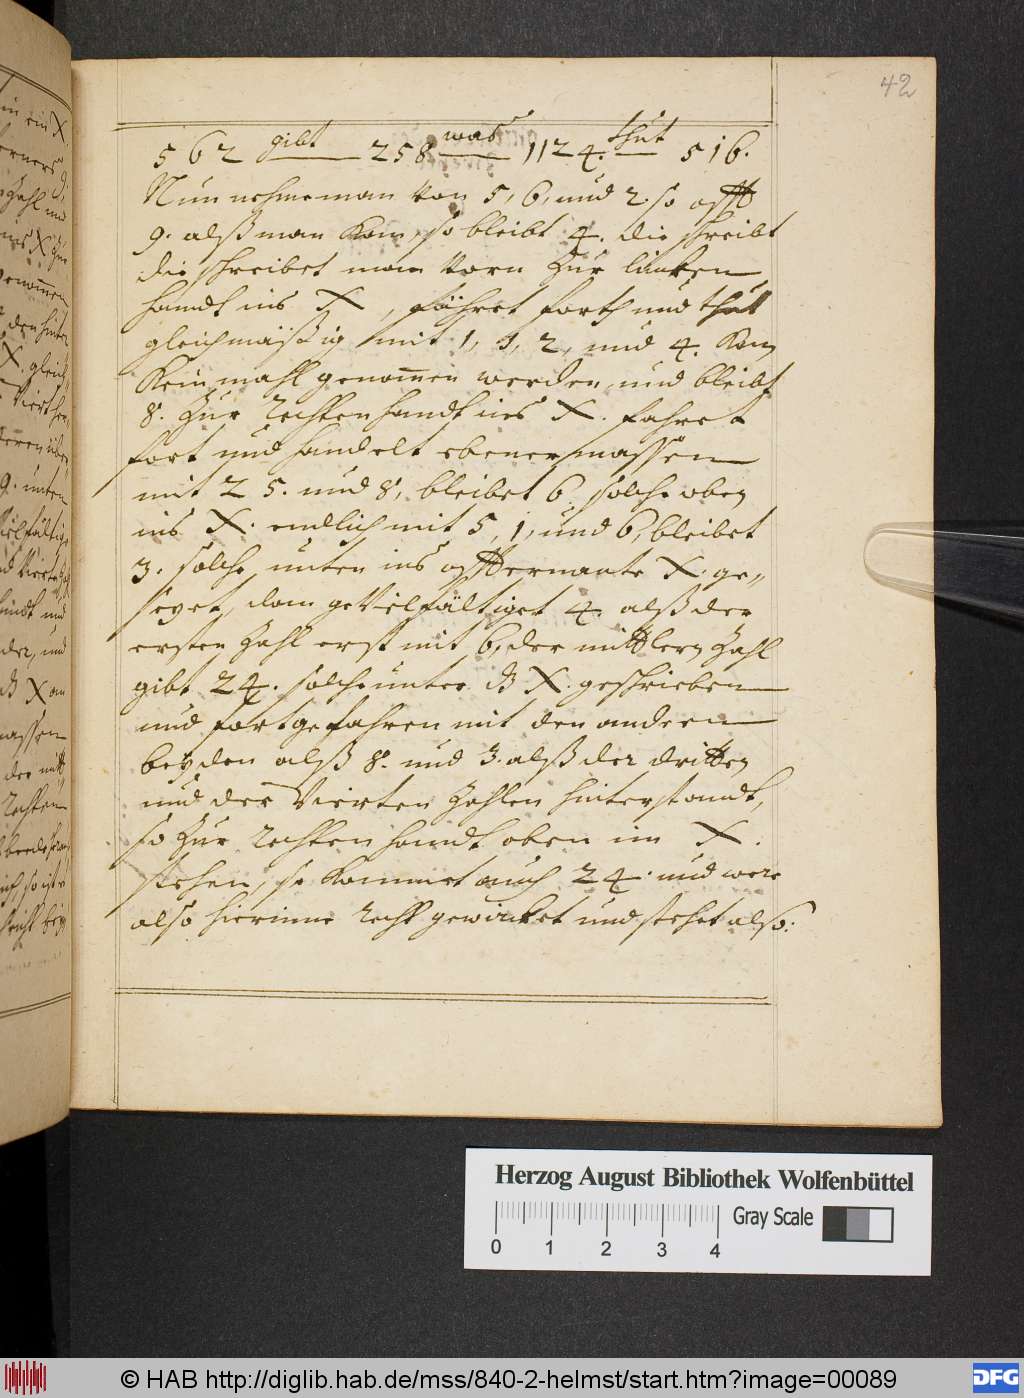 42
562 gibt 258 was 1124. thut 516.
Nun nehme man von 5, 6, und 2. so offt
9. alß man kan, so bleibt 4. die schreibt
die schreibet man vorn Zur lincken
handt ins X, fähret forth und thut
gleichmäßig mit 1, 1, 2, und 4. kan
kein mahl genommen werden, und bleibt
8. Zur rechten handt ins X. fahret
fort und handelt ebener massen
mit 2 5. und 8, bleibet 6. solche oben
ins X. endlich mit 5, 1, und 6, bleibet
3. solche unten ins offternante X. ge„
sezet, dann gevielfältiget 4. alß der
ersten Zahl erst mit 6, der mittlern Zahl
gibt 24. solche unter ds X. geschrieben
und fortgefahren mit den andern
beyden alß 8. und 3. alß der dritten
und der Vierten Zahlen hinterstandt,
so Zur rechten handt oben im X.
stehen, so kommet auch 24. und were
also hierinne recht gewircket und stehet also:
Herzog August Bibliothek Wolfenbüttel
Gray Scale
0 1 2 3 4
© HAB http://diglib.hab.de/mss/840-2-helmst/start.htm?image=00089
DFG